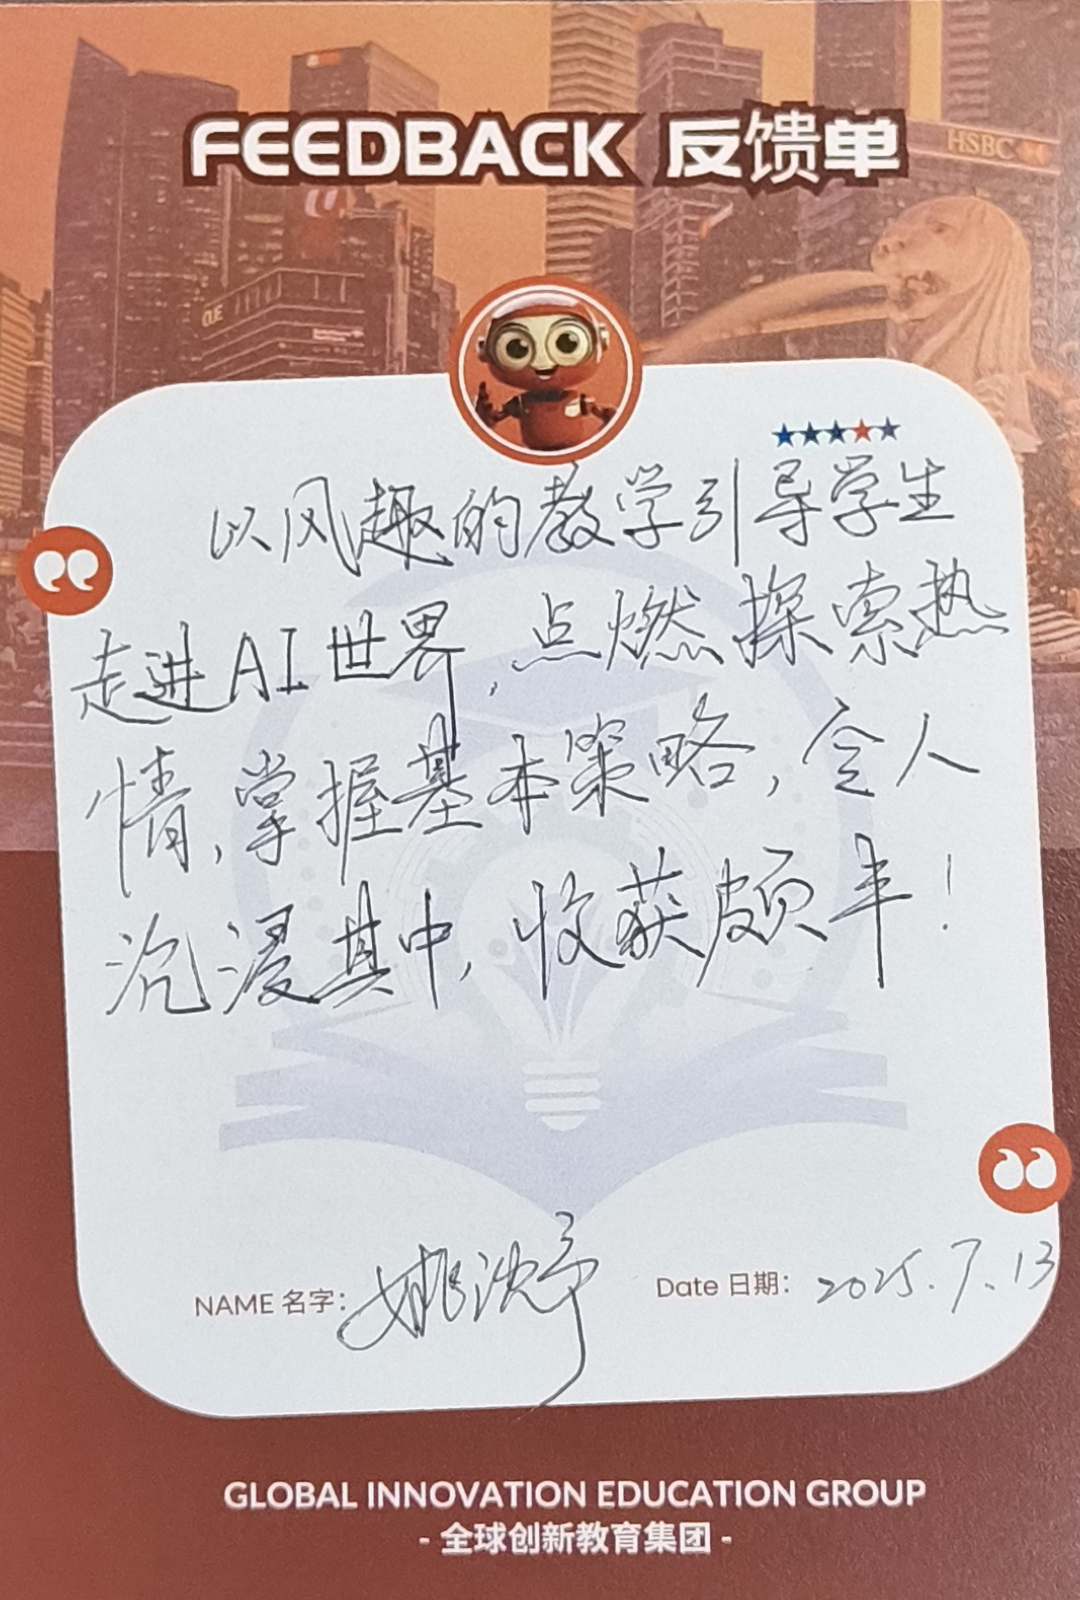 FEEDBACK 反馈单
HSBC
OUE
以风趣的教学引导学生
走进AI世界,点燃探索热
情,掌握基本策略,令人
沉浸其中,收获颇丰!
NAME 名字: 姚沈予
Date 日期: 2025.7.13
GLOBAL INNOVATION EDUCATION GROUP
- 全球创新教育集团 -